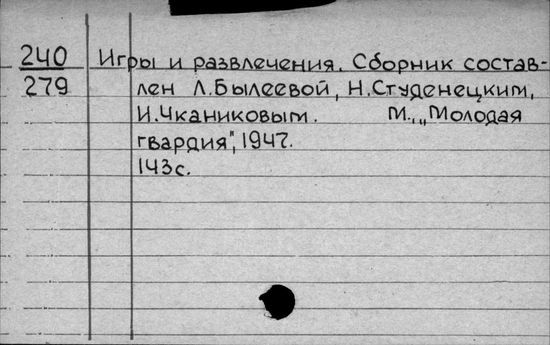 240 Игры и развлечения. Сборник состав-
279 лен Л.Былеевой, Н.Студенецким,
И.Чканиковым. М.,„Молодая
гвардия", 1947.
143с.